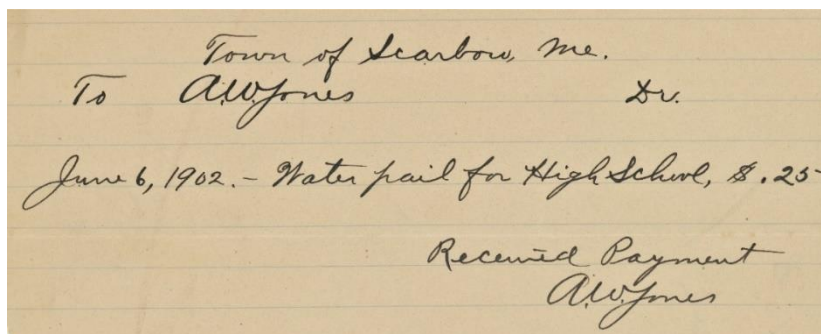 Town of Scarboro, Me.
To A.W. Jones Dr.
June 6, 1902. - Water pail for High School, $.25
Received Payment
A.W. Jones